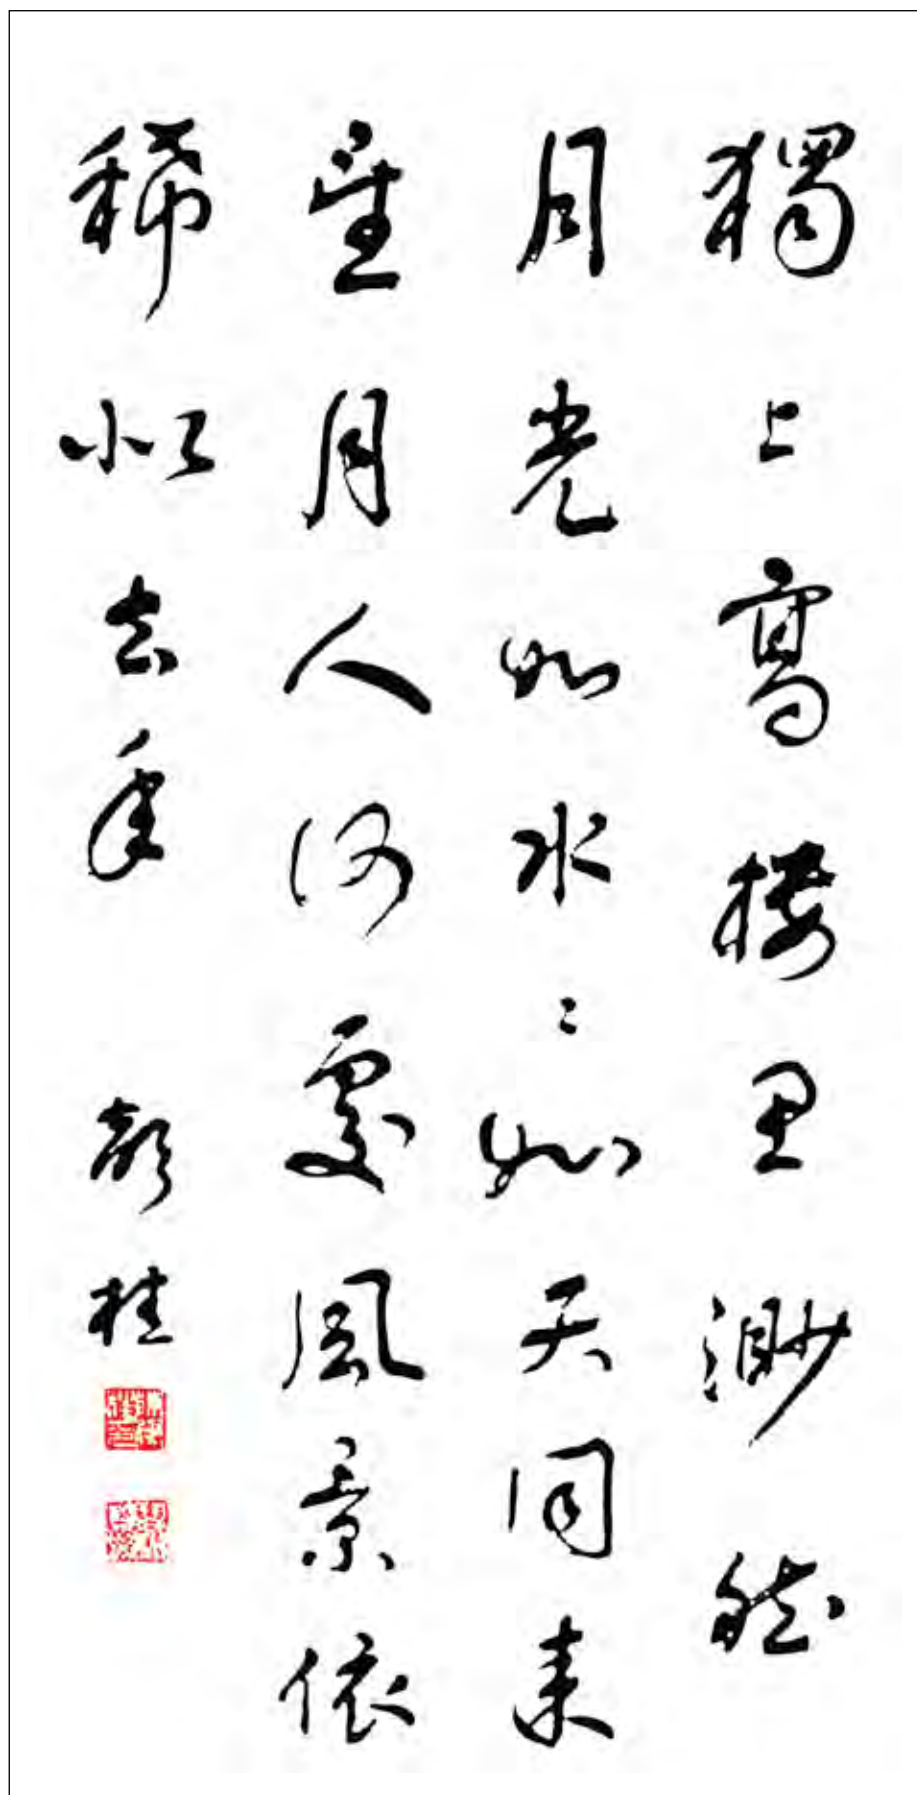 獨上高樓思渺然
月光如水々如天同來
望月人何處風景依
稀似去年 彭桂